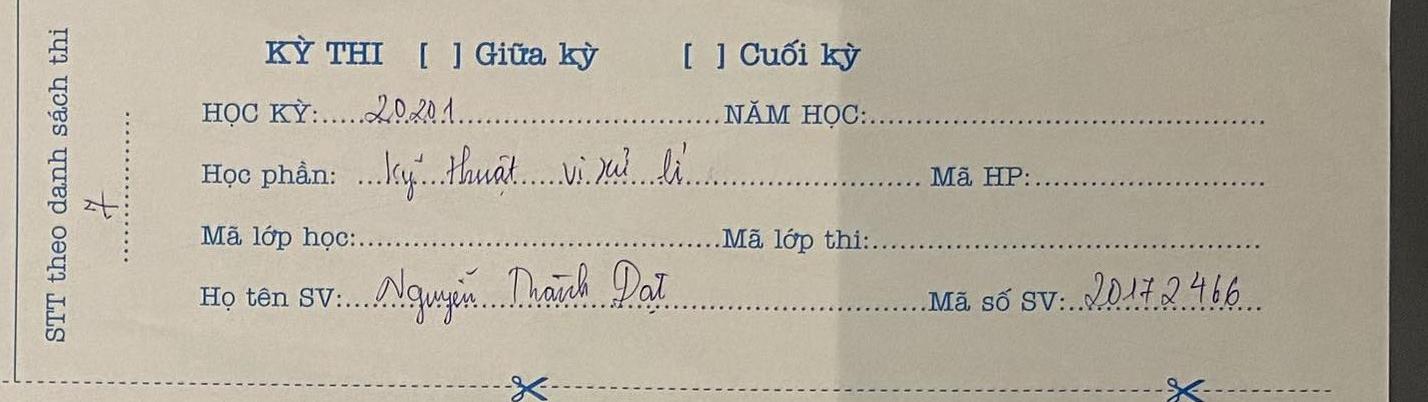 STT theo danh sách thi
7
KỲ THI [ ] Giữa kỳ [ ] Cuối kỳ
HỌC KỲ:.....20201..................................NĂM HỌC:..................................................
Học phần: ...Kỹ thuật vi xử lí............................... Mã HP:..............................
Mã lớp học:..............................................Mã lớp thi:..................................................
Họ tên SV:....Nguyễn Thành Đạt...................................Mã số SV:..20172466...